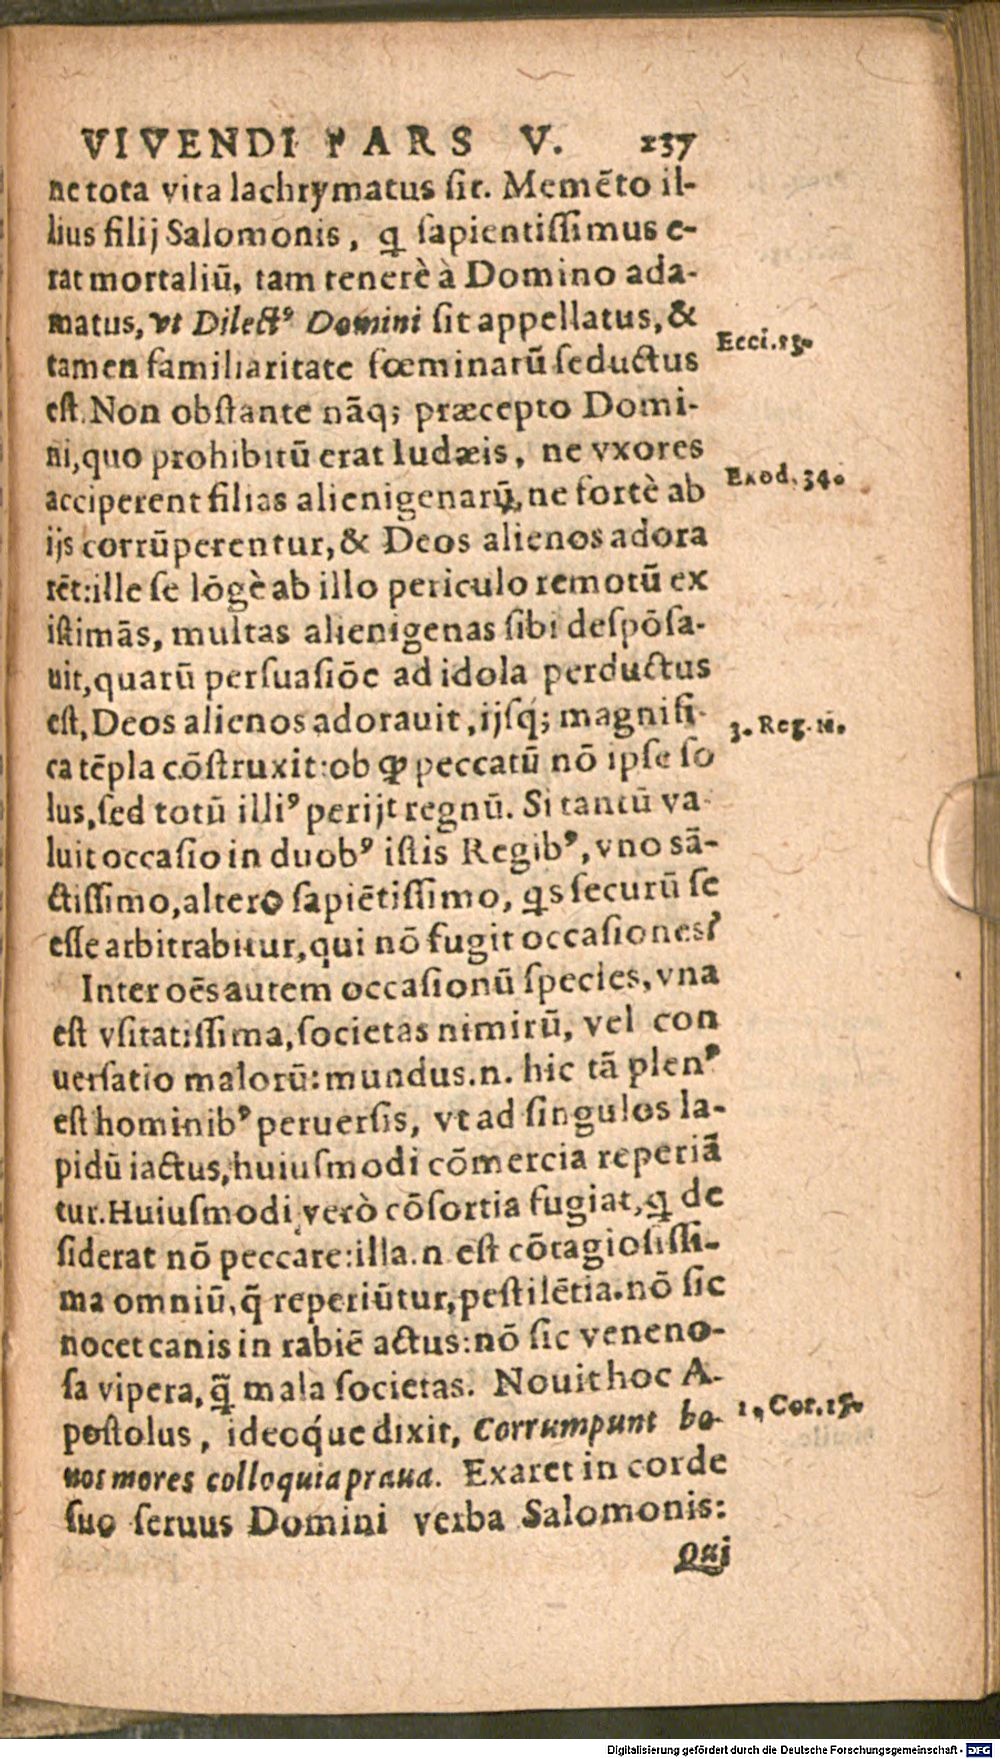 VIVENDI PARS V. 237
ne tota vita lachrymatus ſit. Memẽto il-
lius filij Salomonis, ꝗ ſapientiſſimus e-
rat mortaliũ, tam tenerè à Domino ada-
matus, vt Dilectꝰ Domini ſit appellatus, &
Eccl.
tamen familiaritate fœminarũ ſeductus
eſt. Non obſtante nãq; præcepto Domi-
ni, quo prohibitũ erat Iudæis, ne vxores
Exod. 34.
acciperent filias alienigenarũ, ne fortè ab
ijs corrũperentur, & Deos alienos adora
rẽt: ille ſe lõgè ab illo periculo remotũ ex
iſtimãs, multas alienigenas ſibi deſpõſa-
uit, quarũ perſuaſiõe ad idola perductus
eſt, Deos alienos adorauit, ijſq́; magnifi-
3. Reg. 11.
ca tẽpla cõſtruxit: ob ꝙ peccatũ nõ ipſe ſo
lus, ſed totũ illiꝰ perijt regnũ. Si tantũ va-
luit occaſio in duobꝰ iſtis Regibꝰ, vno ſã-
ctiſſimo, altero ſapiẽtiſſimo, ꝗs ſecurũ ſe
eſſe arbitrabitur, qui nõ fugit occaſiones?
Inter oẽs autem occaſionũ ſpecies, vna
eſt vſitatiſſima, ſocietas nimirũ, vel con
uerſatio malorũ: mundus.n. hic tã plenꝰ
eſt hominibꝰ peruerſis, vt ad ſingulos la-
pidũ iactus, huiuſmodi cõmercia reperiã
tur. Huiuſmodi verò cõſortia fugiat, ꝗ de
ſiderat nõ peccare: illa.n eſt cõtagioſiſſi-
ma omniũ, q̃ reperiũtur, peſtilẽtia. nõ ſic
nocet canis in rabiẽ actus: nõ ſic veneno-
ſa vipera, ꝗ̃ mala ſocietas. Nouit hoc A-
poſtolus, ideoq́ue dixit, Corrumpunt bo-
1. Cor. 15.
nos mores colloquia praua. Exaret in corde
ſuo ſeruus Domini verba Salomonis:
Qui
Digitalisierung gefördert durch die Deutsche Forschungsgemeinschaft - DFG